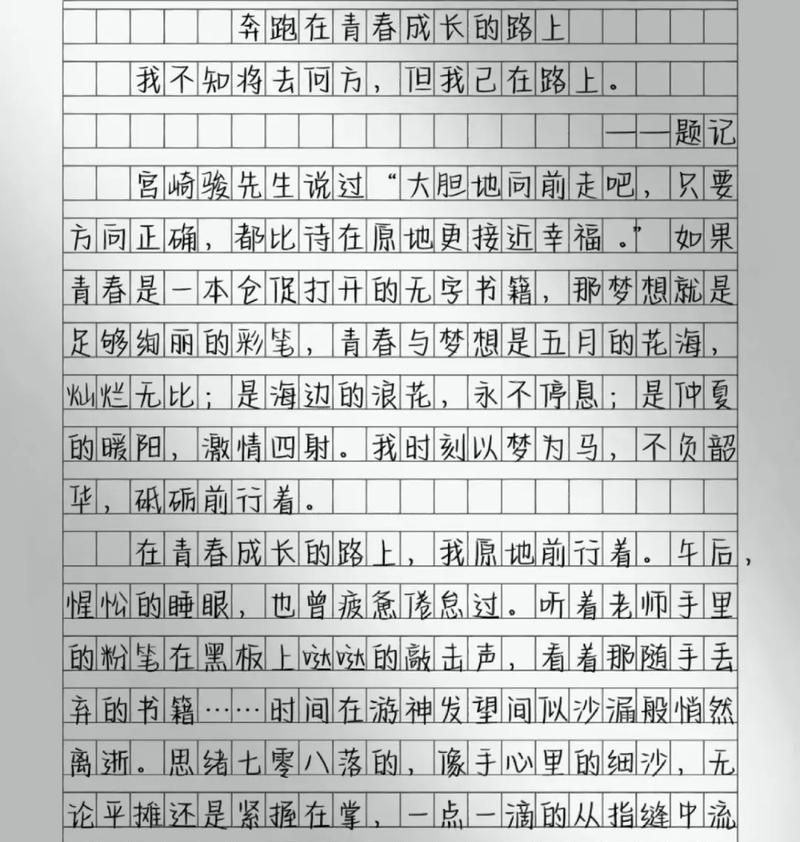 奔跑在青春成长的路上
我不知将去何方，但我已在路上。
——题记
宫崎骏先生说过“大胆地向前走吧，只要
方向正确，都比待在原地更接近幸福。”如果
青春是一本仓促打开的无字书籍，那梦想就是
足够绚丽的彩笔，青春与梦想是五月的花海，
灿烂无比；是海边的浪花，永不停息；是仲夏
的暖阳，激情四射。我时刻以梦为马，不负韶
华，砥砺前行着。
在青春成长的路上，我原地前行着。午后，
惺忪的睡眼，也曾疲惫倦怠过。听着老师手里
的粉笔在黑板上哒哒的敲击声，看着那随手丢
弃的书籍……时间在游神发望间似沙漏般悄然
离逝。思绪七零八落的，像手心里的细沙，无
论平摊还是紧握在掌，一点一滴的从指缝中流